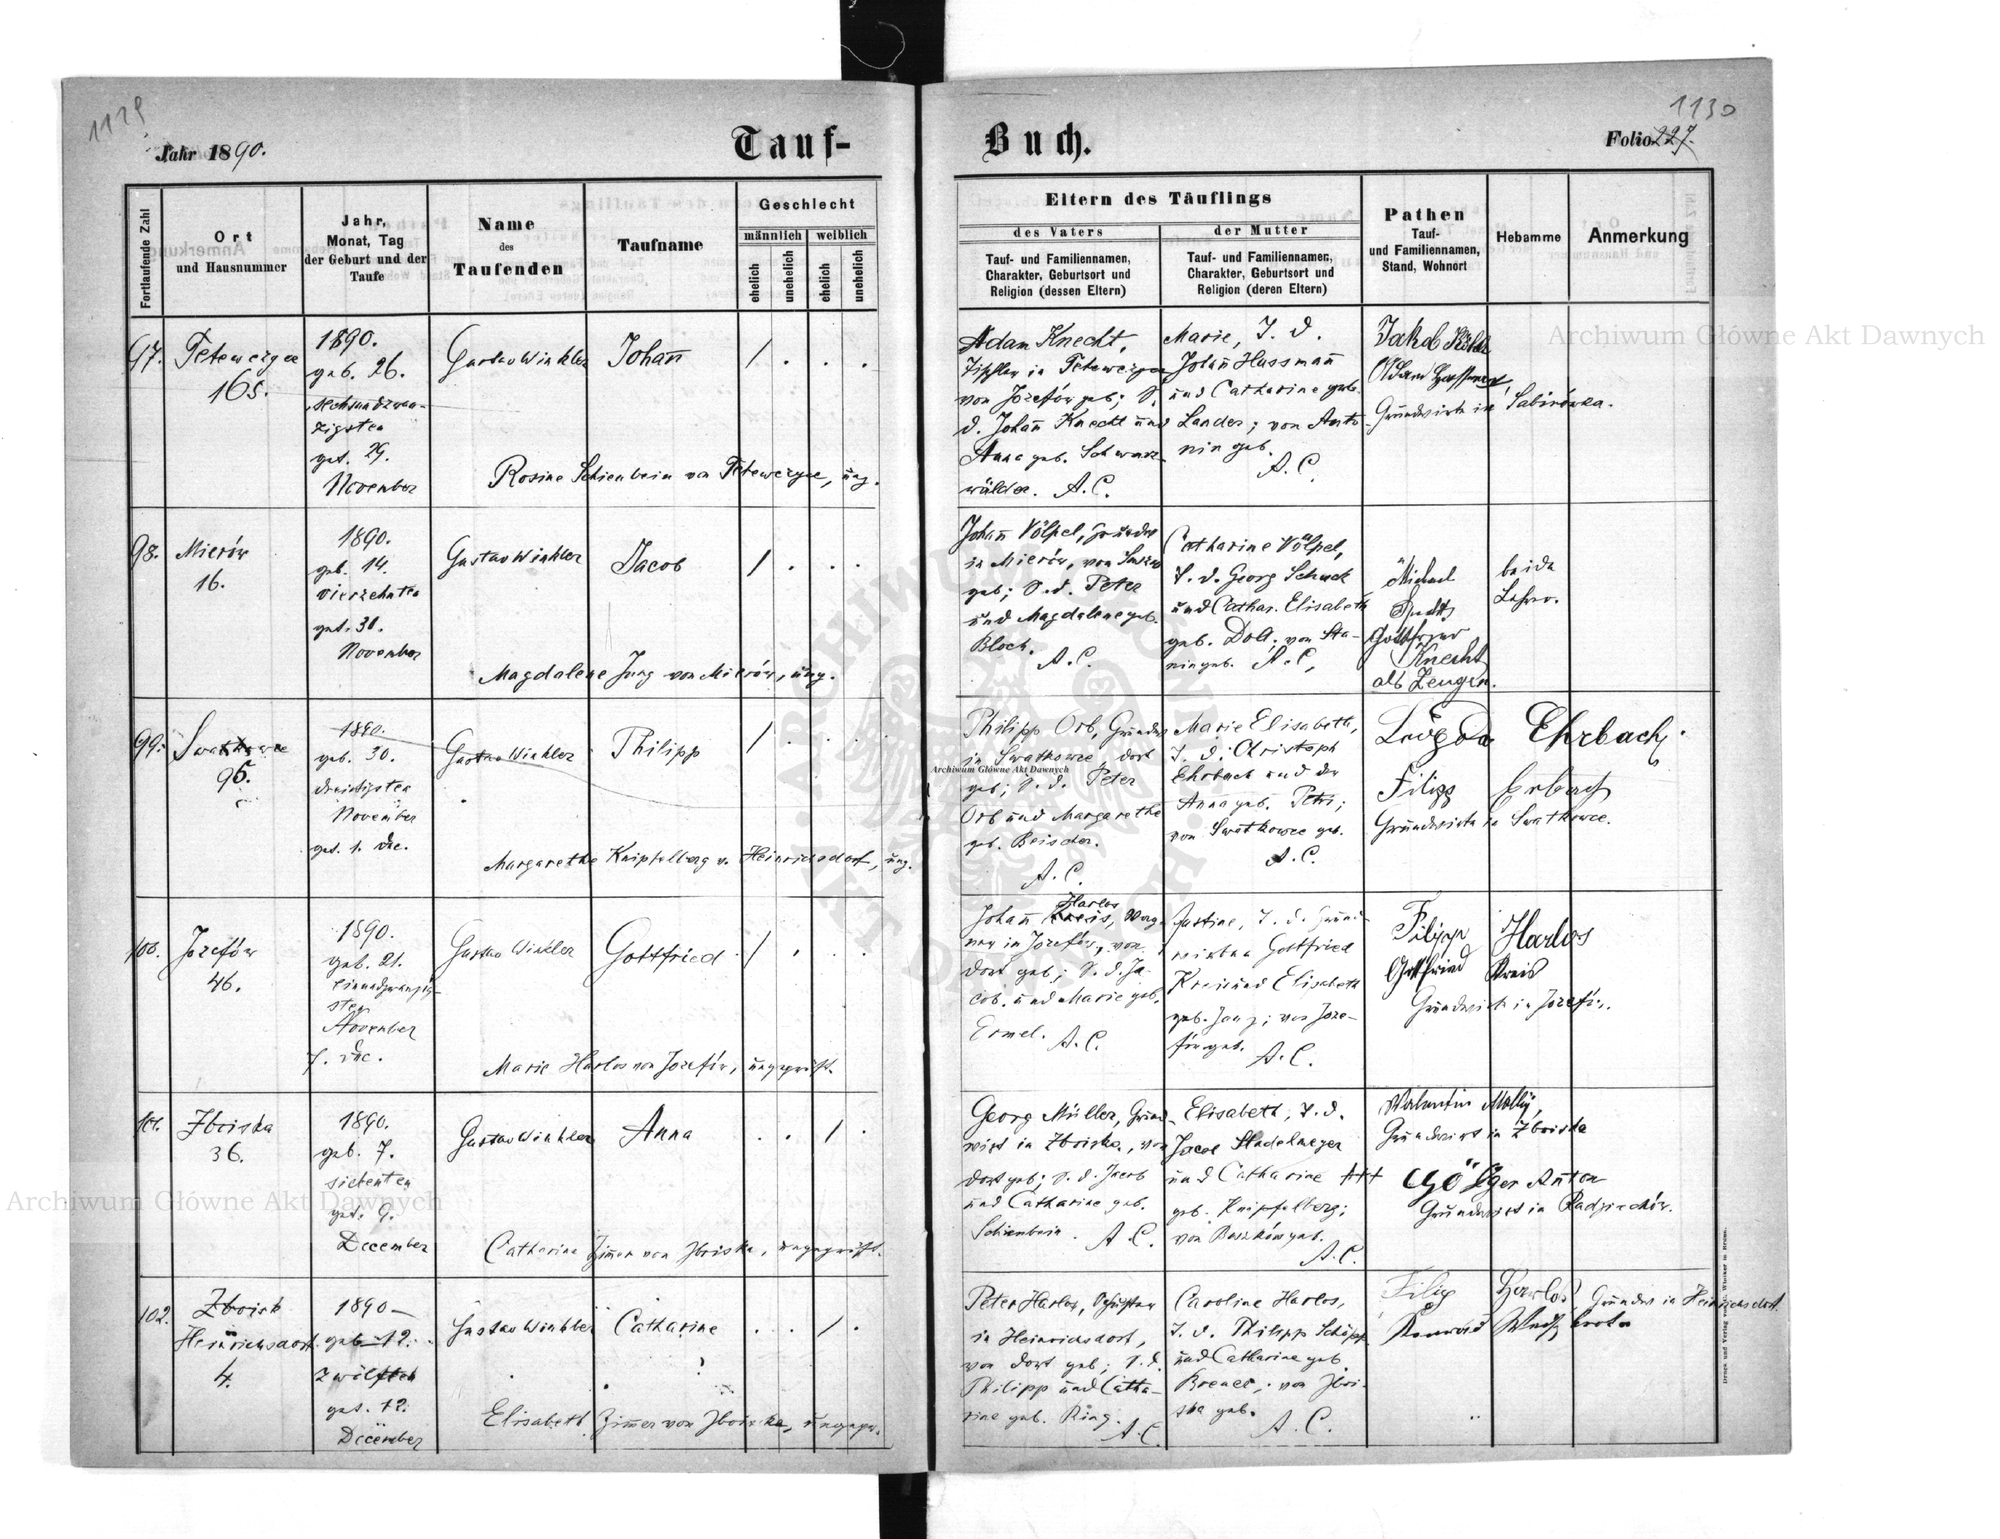 1129
1130
Jahr 1890.
Tauf-
Buch.
Folio 227.
Fortlaufende Zahl
Ort
und Hausnummer
Jahr,
Monat, Tag
der Geburt und der
Taufe
Name
des
Taufenden
Taufname
Geschlecht
männlich
weiblich
ehelich
unehelich
ehelich
unehelich
Eltern des Täuflings
des Vaters
Tauf- und Familiennamen,
Charakter, Geburtsort und
Religion (dessen Eltern)
der Mutter
Tauf- und Familiennamen,
Charakter, Geburtsort und
Religion (deren Eltern)
Pathen
Tauf-
und Familiennamen,
Stand, Wohnort
Hebamme
Anmerkung
97.
1890.
geb. 26.
sechsundzwan-
zigsten
get. 29.
November
Gustav Winkler
Johañ
/ . . .
Rosine Schienbein von
Adam Knecht,
Tischler in
von Józefów geb; S.
d. Johañ Knecht und
Anna geb. Schwarz-
wälder. A.C.
Marie, T. d.
Johañ Hassmañ
und Catharine geb.
Lander; von Anto-
nin geb.
A.C.
Jakob
Grundwirth in Sabinówka.
98.
Mierów
16.
1890.
geb. 14.
vierzehnten
get. 30.
November
Gustav Winkler
Jacob
/ . . .
Magdalene Jung von Mierów, ung.
Johañ Völpel,
in Mierów, von
geb; S. d. Peter
und Magdalene geb.
Bloch.
A.C.
Catharine Völpel,
T. d. Georg Schuck
und Cathar. Elisabeth
geb. Doll; von Sta-
nin geb. A.C.
Michael
Gottfried
Knecht
als Zeugen.
beide
Lehrer.
99.
96.
1890.
geb. 30.
dreissigsten
November
get. 1. Dec.
Gustav Winkler
Philipp
/ . . .
Margarethe Knipfelberg v. Heinrichsdorf, ung.
Philipp Orb,
in Swatkowce, dort
geb; S. d. Peter
Orb und Margarethe
geb. Beischer.
A.C.
Marie Elisabeth,
T. d. Christoph
Ehrbach und der
Anna geb. Petri;
von Swatkowce geb.
A.C.
Ehrbach.
Filipp Erbach
Grundwirthe in Swatkowce.
100.
Józefów
46.
1890.
geb. 21.
einundzwanzig-
sten
November
7. Dec.
Gustav Winkler
Gottfried
/ . . .
Marie Harlos von Józefów, ungeprüft.
Harlos
Johañ Kreis, Wag-
ner in Józefów, von
dort geb; S. d. Ja-
cob. und Marie geb.
Ermel. A.C.
Justine, T. d. Grund-
wirthen Gottfried
Kreis und Elisabeth
geb. Jung; von Joze-
fów geb. A.C.
Filipp Harlos
Gottfried Kreis
Grundwirth in Jozefów.
101.
Zboiska
36.
1890.
geb. 7.
siebenten
get. 9.
December
Gustav Winkler
Anna
. . / .
Catharina Zimer von Zboiska, ungeprüft.
Georg Müller, Grund-
wirt in Zboiska, von
dort geb; S. d. Jacob
und Catharine geb.
Schienbein. A.C.
Elisabeth, T. d.
Jacob Stadelmeyer
und Catharine
geb. Knipfelberg;
von geb.
A.C.
Valentin
Grundwirt in Zboiska
Anton
Grundwirt in Radziechów.
102.
Zboisk
Heinrichsdorf.
4.
1890 –
geb. 12.
zwölften
get. 12.
December
Gustav Winkler
Catharine
. . / .
Elisabeth Zimmer von Zboiska, ungepr.
Peter Harlos, Schuster
in Heinrichsdorf,
von dort geb; S. d.
Philipp und Catha-
rine geb. Ring.
A.C.
Caroline Harlos,
T. d. Philipp Schöpp
und Catharine geb.
von Zboi-
ska geb.
A.C.
Filip Harlos, in Heinrichsdorf
Druck und Verlag in Brünn.
Archiwum Główne Akt Dawnych
Archiwum Główne Akt Dawnych
Archiwum Główne Akt Dawnych